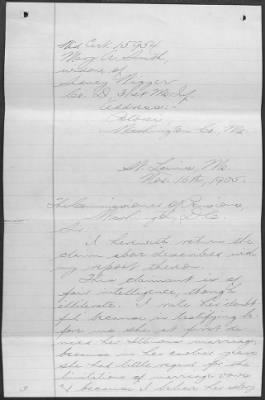 Wid Cert. 15954
Mary A. Smith,
widow of
Wigger
Co. D 31st Mo Inf.
Address:
Potosi
Washington Co., Mo.
St. Louis, Mo.
Nov. 16th, 1905.
The Commissioner of Pensions,
Washington, D.C.
Sir:
I herewith return the
claim above described with
my report thereon.
This claimant is of
fair intelligence, though
illiterate. I rate her doubt-
ful because in testifying be-
fore me she at first de-
nied her marriage,
because in her earlier years
she had little regard for the
limitations of marriage vows
I because I believe her story